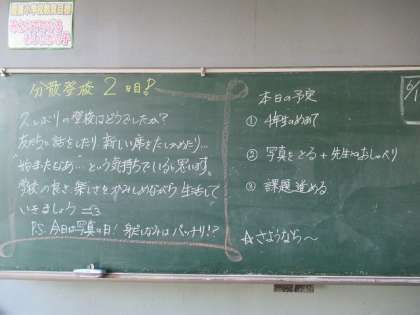 分散登校 2日目!
久しぶりの学校はどうでしたか?
友だちと話をしたり 新しい席をたしかめたり…
"始まったなぁ"という気持ちでいると思います。
学校の良さ、楽しさをかみしめながら 生活して
いきましょう
P.S. 今日は写真の日! 身だしなみは バッチリ!?
本日の予定
① 4年生のめあて
② 写真をとる + 先生とおしゃべり
③ 課題進める
☆さようなら〜
6/1